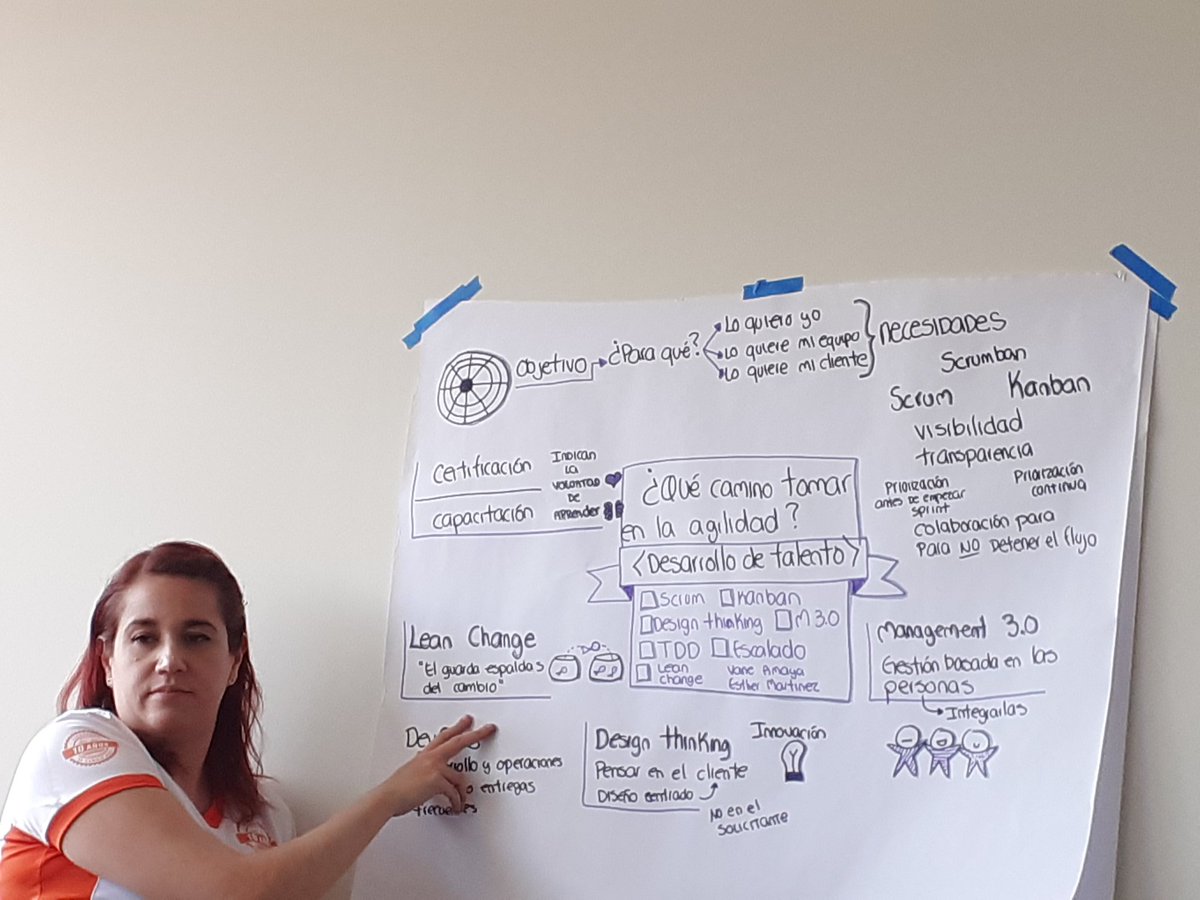 objetivo
¿Para qué?
Lo quiero yo
Lo quiere mi equipo
Lo quiere mi cliente
necesidades
Scrumban
Scrum
Kanban
visibilidad
transparencia
Priorización
antes de empezar
sprint
Priorización
continua
colaboración para
Para NO Detener el flujo
certificación
capacitación
Indican
la
voluntad
de
aprender
¿Qué camino tomar
en la agilidad?
<Desarrollo de talento>
Scrum Kanban
Design thinking M 3.0
TDD Escalado
Lean
change
Vane Amaya
Esther Martinez
Lean Change
"El guarda espaldas
del cambio"
Management 3.0
Gestión basada en las
personas
Integrarlas
y operaciones
entregas
Design thinking
Pensar en el cliente
Diseño centrado
Innovación
No en el
solicitante
10 AÑOS